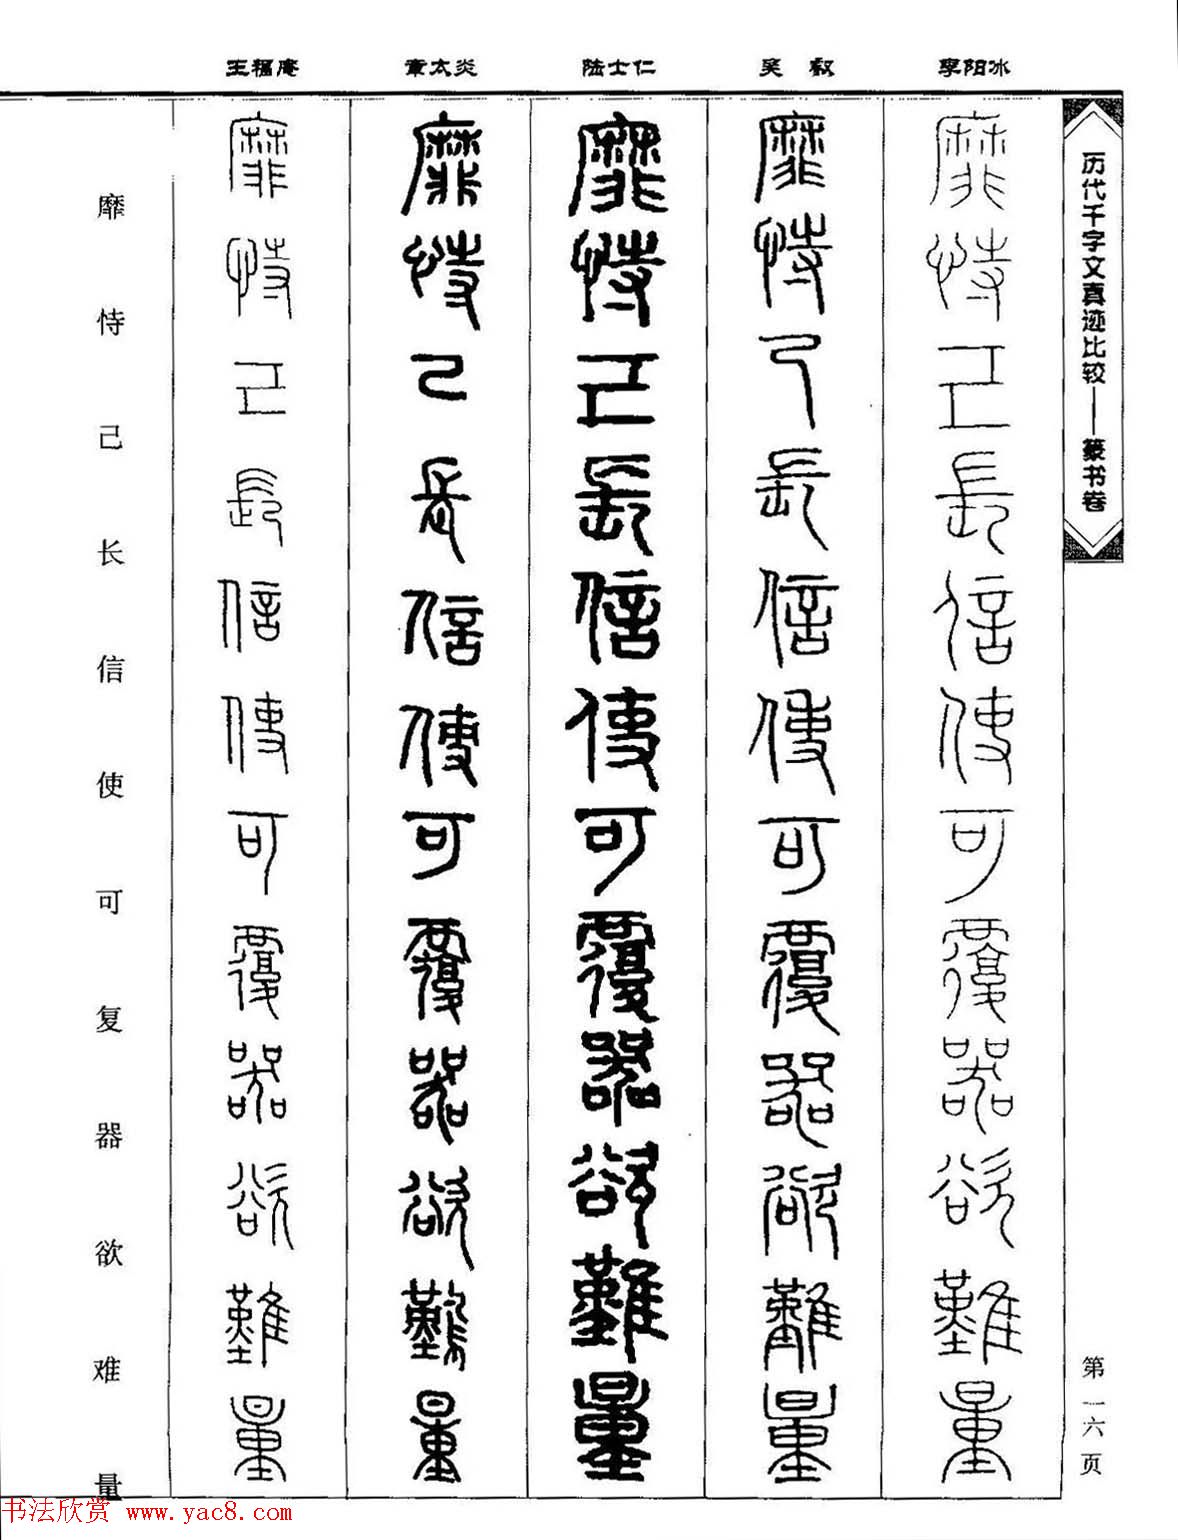 李阳冰
吴叡
陆士仁
章太炎
王福庵
历代千字文真迹比较——篆书卷
靡恃己長信使可覆器欲難量
靡恃己長信使可覆器欲難量
靡恃己長信使可覆器欲難量
靡恃己長信使可覆器欲難量
靡恃己長信使可覆器欲難量
靡恃己长信使可复器欲难量
第一六页
书法欣赏 www.yac8.com